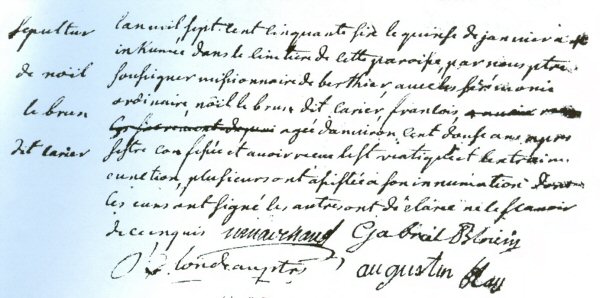 Sepultur
de noil
le brun
dit carier
Lan mil sept cent cinquante six le quinse de janvier a
inhumée dans le cimitiere de cette paroisse, par nous ptre
sousigner missionnaire de berthier, avec les sérémonie
ordinaire, noil le brun dit carier francois
agée danviron cent douse ans, apres
sestre confessée et avoir recue le st viatique et
onction, plusieurs ont assistée a son innumation dont
les uns ont signé les autres ont déclaré ne le scavoir
de ce enquis Gabriel
ptre augustin